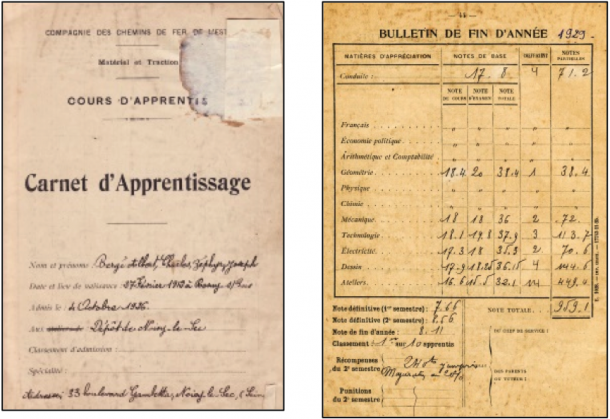 COMPAGNIE DES CHEMINS DE FER DE L'EST
Matériel et Traction
COURS D'APPRENTIS
Carnet d'Apprentissage
Nom et prénoms: Bergé Albert Charles Zéphyr Joseph
Date et lieu de naissance: 27 Février 1913 à
Admis le: 4 Octobre 1926
Aux Dépôt de Noisy-le-Sec
Classement d'admission:
Spécialité:
Adresse: 33 boulevard Gambetta, Noisy-le-Sec, (Seine
BULLETIN DE FIN D'ANNÉE 1929
MATIÈRES D'APPRÉCIATION NOTES DE BASE NOTES
Conduite: 17.8. 4 71.2
NOTE DU COURS NOTE D'EXAMEN NOTE TOTALE
Français " " " " "
Économie politique " " " " "
Arithmétique et Comptabilité " " " " "
Géométrie 18.4 20 38.4 1 38.4
Physique " " " " "
Chimie " " " " "
Mécanique 18 18 36 2 72.
Technologie 18.1 19.8 37.9 3 113.7
Électricité 17.3 18 35.3 2 70.6
Dessin 17.9 18.25 36.15 4 144.6
Ateliers 16.6 15.5 32.1 14 449.4
NOTE TOTALE 959.1
Note définitive (1er semestre): 7.66
Note définitive (2e semestre): 8.56
Note de fin d'année: 8.11
Classement: 1er sur 10 apprentis
Récompenses du 2e semestre
Punitions du 2e semestre
DU CHEF DE SERVICE:
DES PARENTS OU TUTEUR: